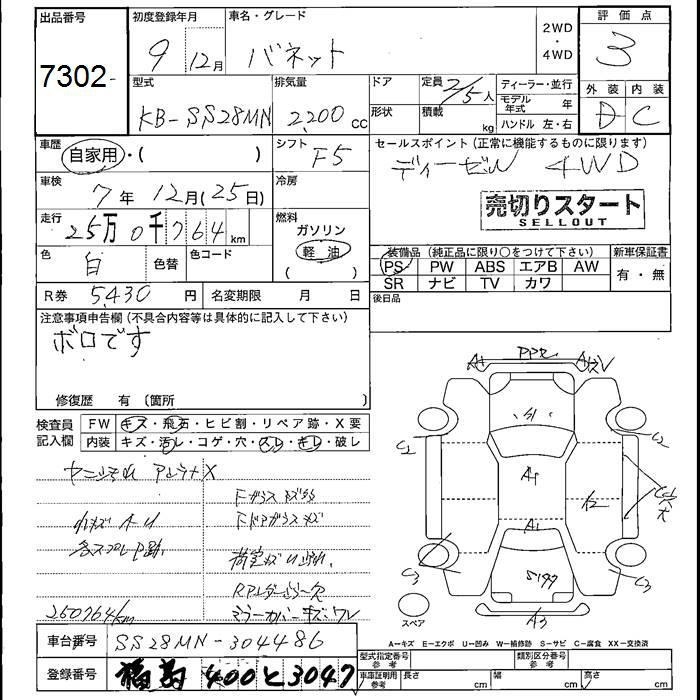 出品番号
7302-
初度登録年月
9年 12月
車名・グレード
バネット
2WD
・
4WD
評価点
3
外装 内装
D C
型式
KB-SS28MN
排気量
2,200 cc
ドア
形状
定員 2/5人
積載 kg
ディーラー・並行
モデル年式 年
ハンドル 左・右
車歴
自家用・( )
シフト
F5
セールスポイント(正常に機能するものに限ります)
ディーゼル 4WD
車検
7年 12月(25日)
冷房
売切りスタート
SELLOUT
走行
25万0千764km
燃料
ガソリン
軽油
( )
色
白
色替
色コード
装備品(純正品に限り○をつけて下さい)
新車保証書
PS PW ABS エアB AW
SR ナビ TV カワ
有・無
R券 5,430円
名変期限 月 日
後日品
注意事項申告欄(不具合内容等は具体的に記入して下さい)
ボロです
修復歴 有(箇所 )
検査員記入欄
FW キズ・飛石・ヒビ割・リペア跡・X要
内装 キズ・汚レ・コゲ・穴・スレ・キレ・破レ
各スプレーP跡
Fガラスキズ
Fドアガラスキズ
250764km
ミラーカバーキズワレ
PPR
A1
S1
C2
C3
C3
A3
スペア
A-キズ E-エクボ U-凹み W-補修跡 S-サビ C-腐食 XX-交換済
車台番号
SS28MN-304486
登録番号
400 と 3047
型式指定番号
参考
類別区分番号
参考
車庫証明用
参考
長さ cm
幅 cm
高さ cm